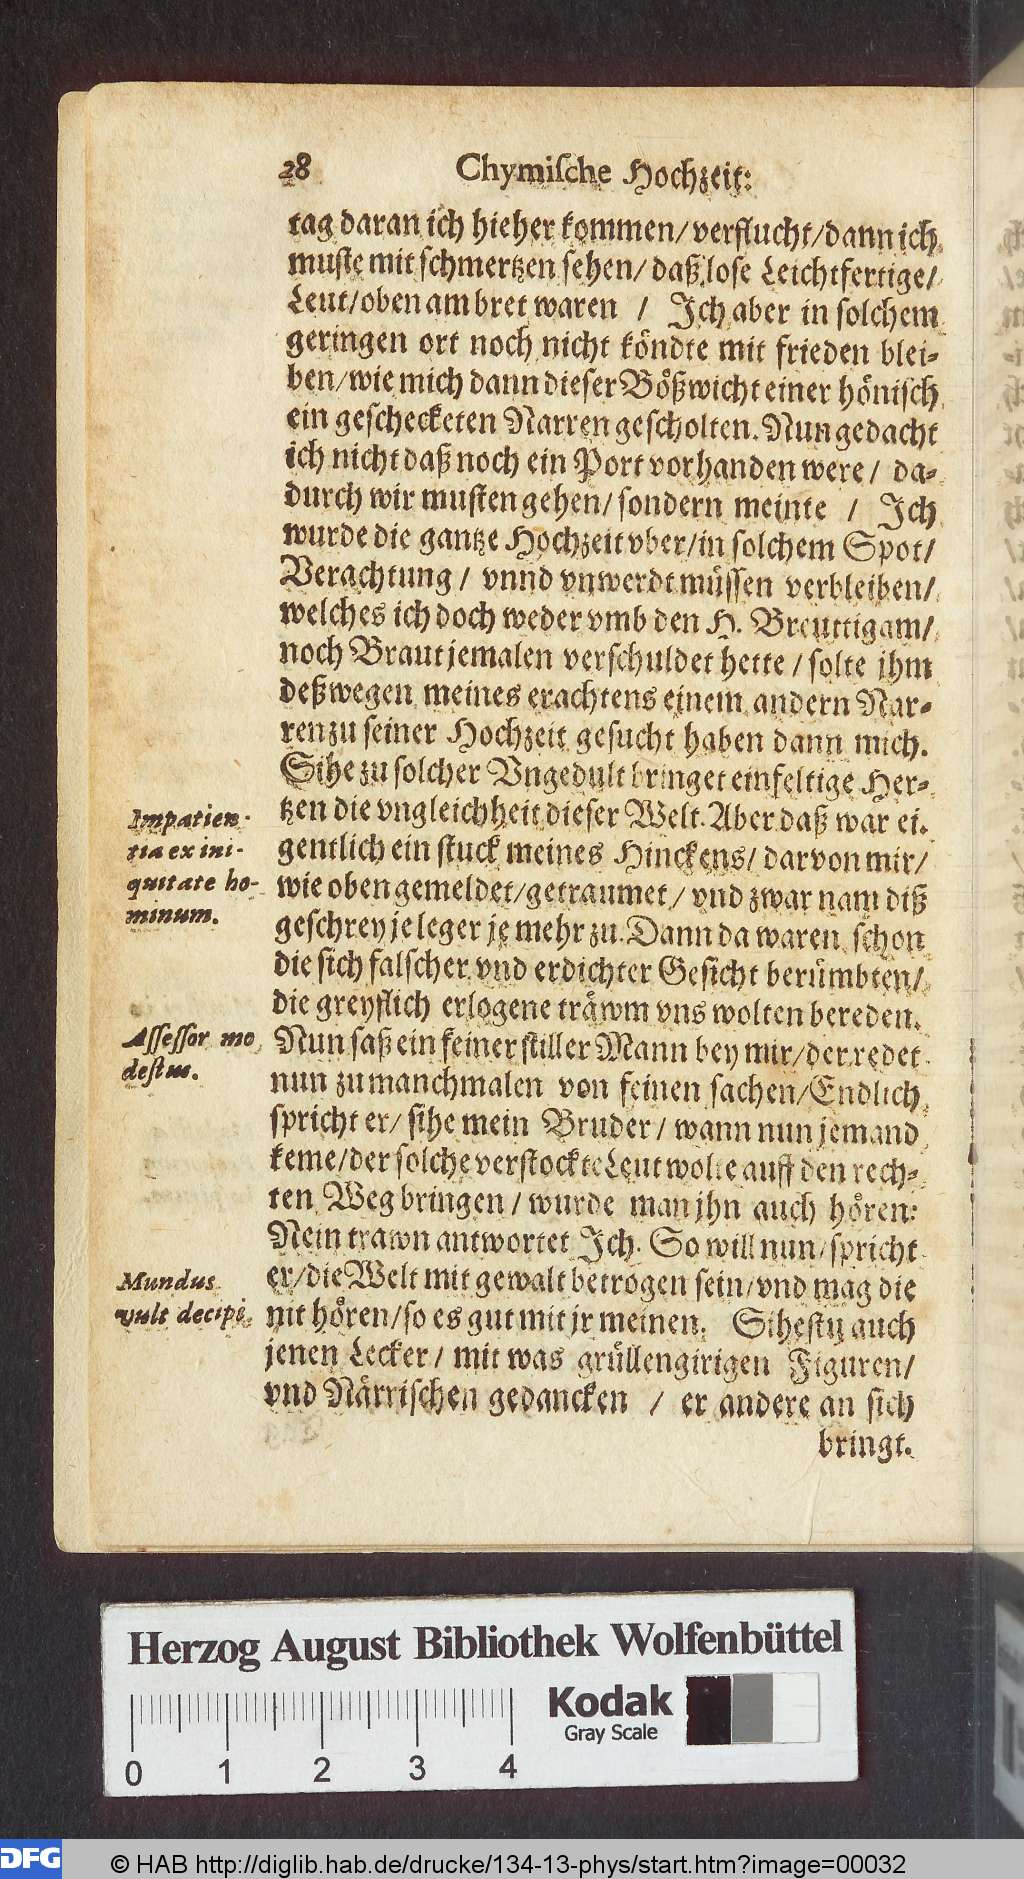 28 Chymische Hochzeit:
tag daran ich hieher kommen/verflucht/dann ich
muste mit schmertzen sehen/ daß lose Leichtfertige/
Leut/oben am bret waren / Ich aber in solchem
geringen ort noch nicht köndte mit frieden blei-
ben/wie mich dann dieser Bößwicht einer hönisch
ein gescheckten Narren gescholten. Nun gedacht
ich nicht daß noch ein Port vorhanden were/ da-
durch wir musten gehen/ sondern meinte / Ich
wurde die gantze Hochzeit vber/in solchem Spot/
Verachtung/ vnnd vnwerdt müssen verbleiben/
welches ich doch weder vmb den H. Breuttigam/
noch Braut jemalen verschuldet hette/ solte ihm
deßwegen meines erachtens einem andern Nar-
ren zu seiner Hochzeit gesucht haben dann mich.
Sihe zu solcher Vngedult bringet einfeltige Her-
tzen die vngleichheit dieser Welt. Aber daß war ei-
gentlich ein stuck meines Hinckens/ darvon mir/
wie oben gemeldet/getraumet/ vnd zwar nam diß
geschrey je leger je mehr zu. Dann da waren schon
die sich falscher vnd erdichter Gesicht berümbten/
die greyflich erlogene träwm vns wolten bereden.
Nun saß ein feiner stiller Mann bey mir/der redet
nun zu manchmalen von feinen sachen/Endlich
spricht er/ sihe mein Bruder/ wann nun jemand
keme/der solche verstockte Leut wolte auff den rech-
ten Weg bringen/ wurde man jhn auch hören:
Nein trawn antwortet Ich. So will nun/spricht
er/die Welt mit gewalt betrogen sein/vnd mag die
nit hören/so es gut mit jr meinen. Sihestu auch
jenen Lecker/ mit was grüllengirigen Figuren/
vnd Närrischen gedancken / er andere an sich
bringt.
Impatien-
tia ex ini-
quitate ho-
minum.
Assessor mo
destus.
Mundus
vult decipi.
Herzog August Bibliothek Wolfenbüttel
Kodak
Gray Scale
0 1 2 3 4
DFG © HAB http://diglib.hab.de/drucke/134-13-phys/start.htm?image=00032